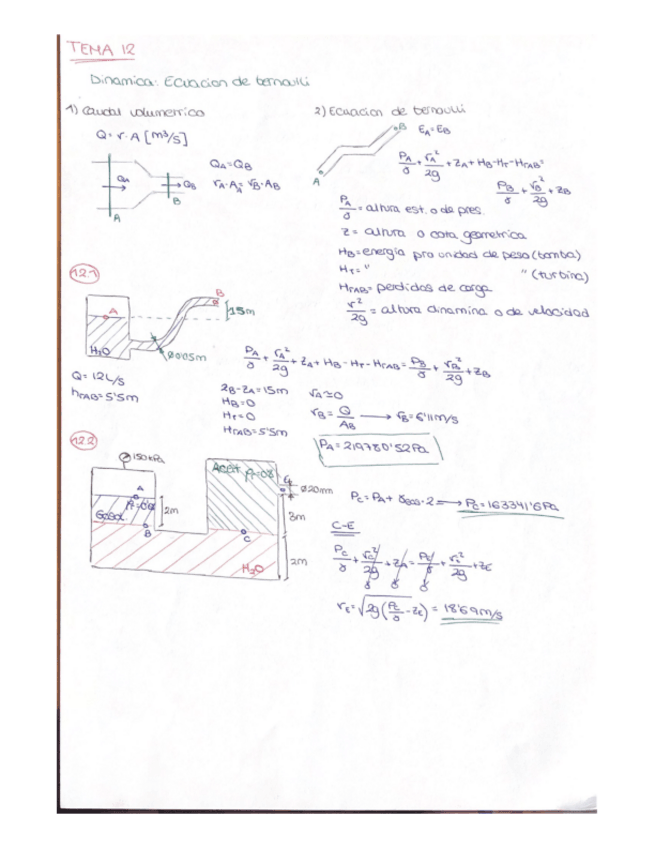 TEMA 12
Dinamica: Ecuacion de bernoulli
1) Caudal volumetrico
Q = v · A [m³/s]
QA
A
QB
B
QA = QB
vA · AA = vB · AB
2) Ecuacion de bernoulli
A
B
EA = EB
PA/γ + vA²/2g + ZA + HB - HT - HrAB =
PB/γ + vB²/2g + ZB
PA/γ = altura est. o de pres.
Z = altura o cota geometrica
HB = energía pro unidad de peso (bomba)
HT = " " (turbina)
HrAB = perdidas de carga
v²/2g = altura dinamina o de velocidad
12.1
A
B
15m
H2O
Ø0'05m
Q = 12L/s
hrAB = 5'5m
PA/γ + vA²/2g + ZA + HB - HT - HrAB = PB/γ + vB²/2g + ZB
ZB - ZA = 15m
HB = 0
HT = 0
HrAB = 5'5m
vA ≃ 0
vB = Q/AB → vB = 6'11m/s
PA = 219780'52Pa
12.2
150kPa
A
Gasol.
B
2m
Aceit
C
E
Ø20mm
3m
2m
H2O
PC = PA + · 2 = → PC = 163341'6Pa
C-E
vE = √2g(PC/γ - ZE) = 18'69m/s